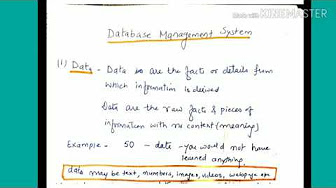 Made with
KINEMASTER
Database Management System
(1) Data - Data so are the facts or details from
which information is derived
Data are the raw facts & pieces of
information with no context (meaning)
Example - 50 - data - you would not have
learned anything.
data may be text, numbers, images, videos, webpage etc.